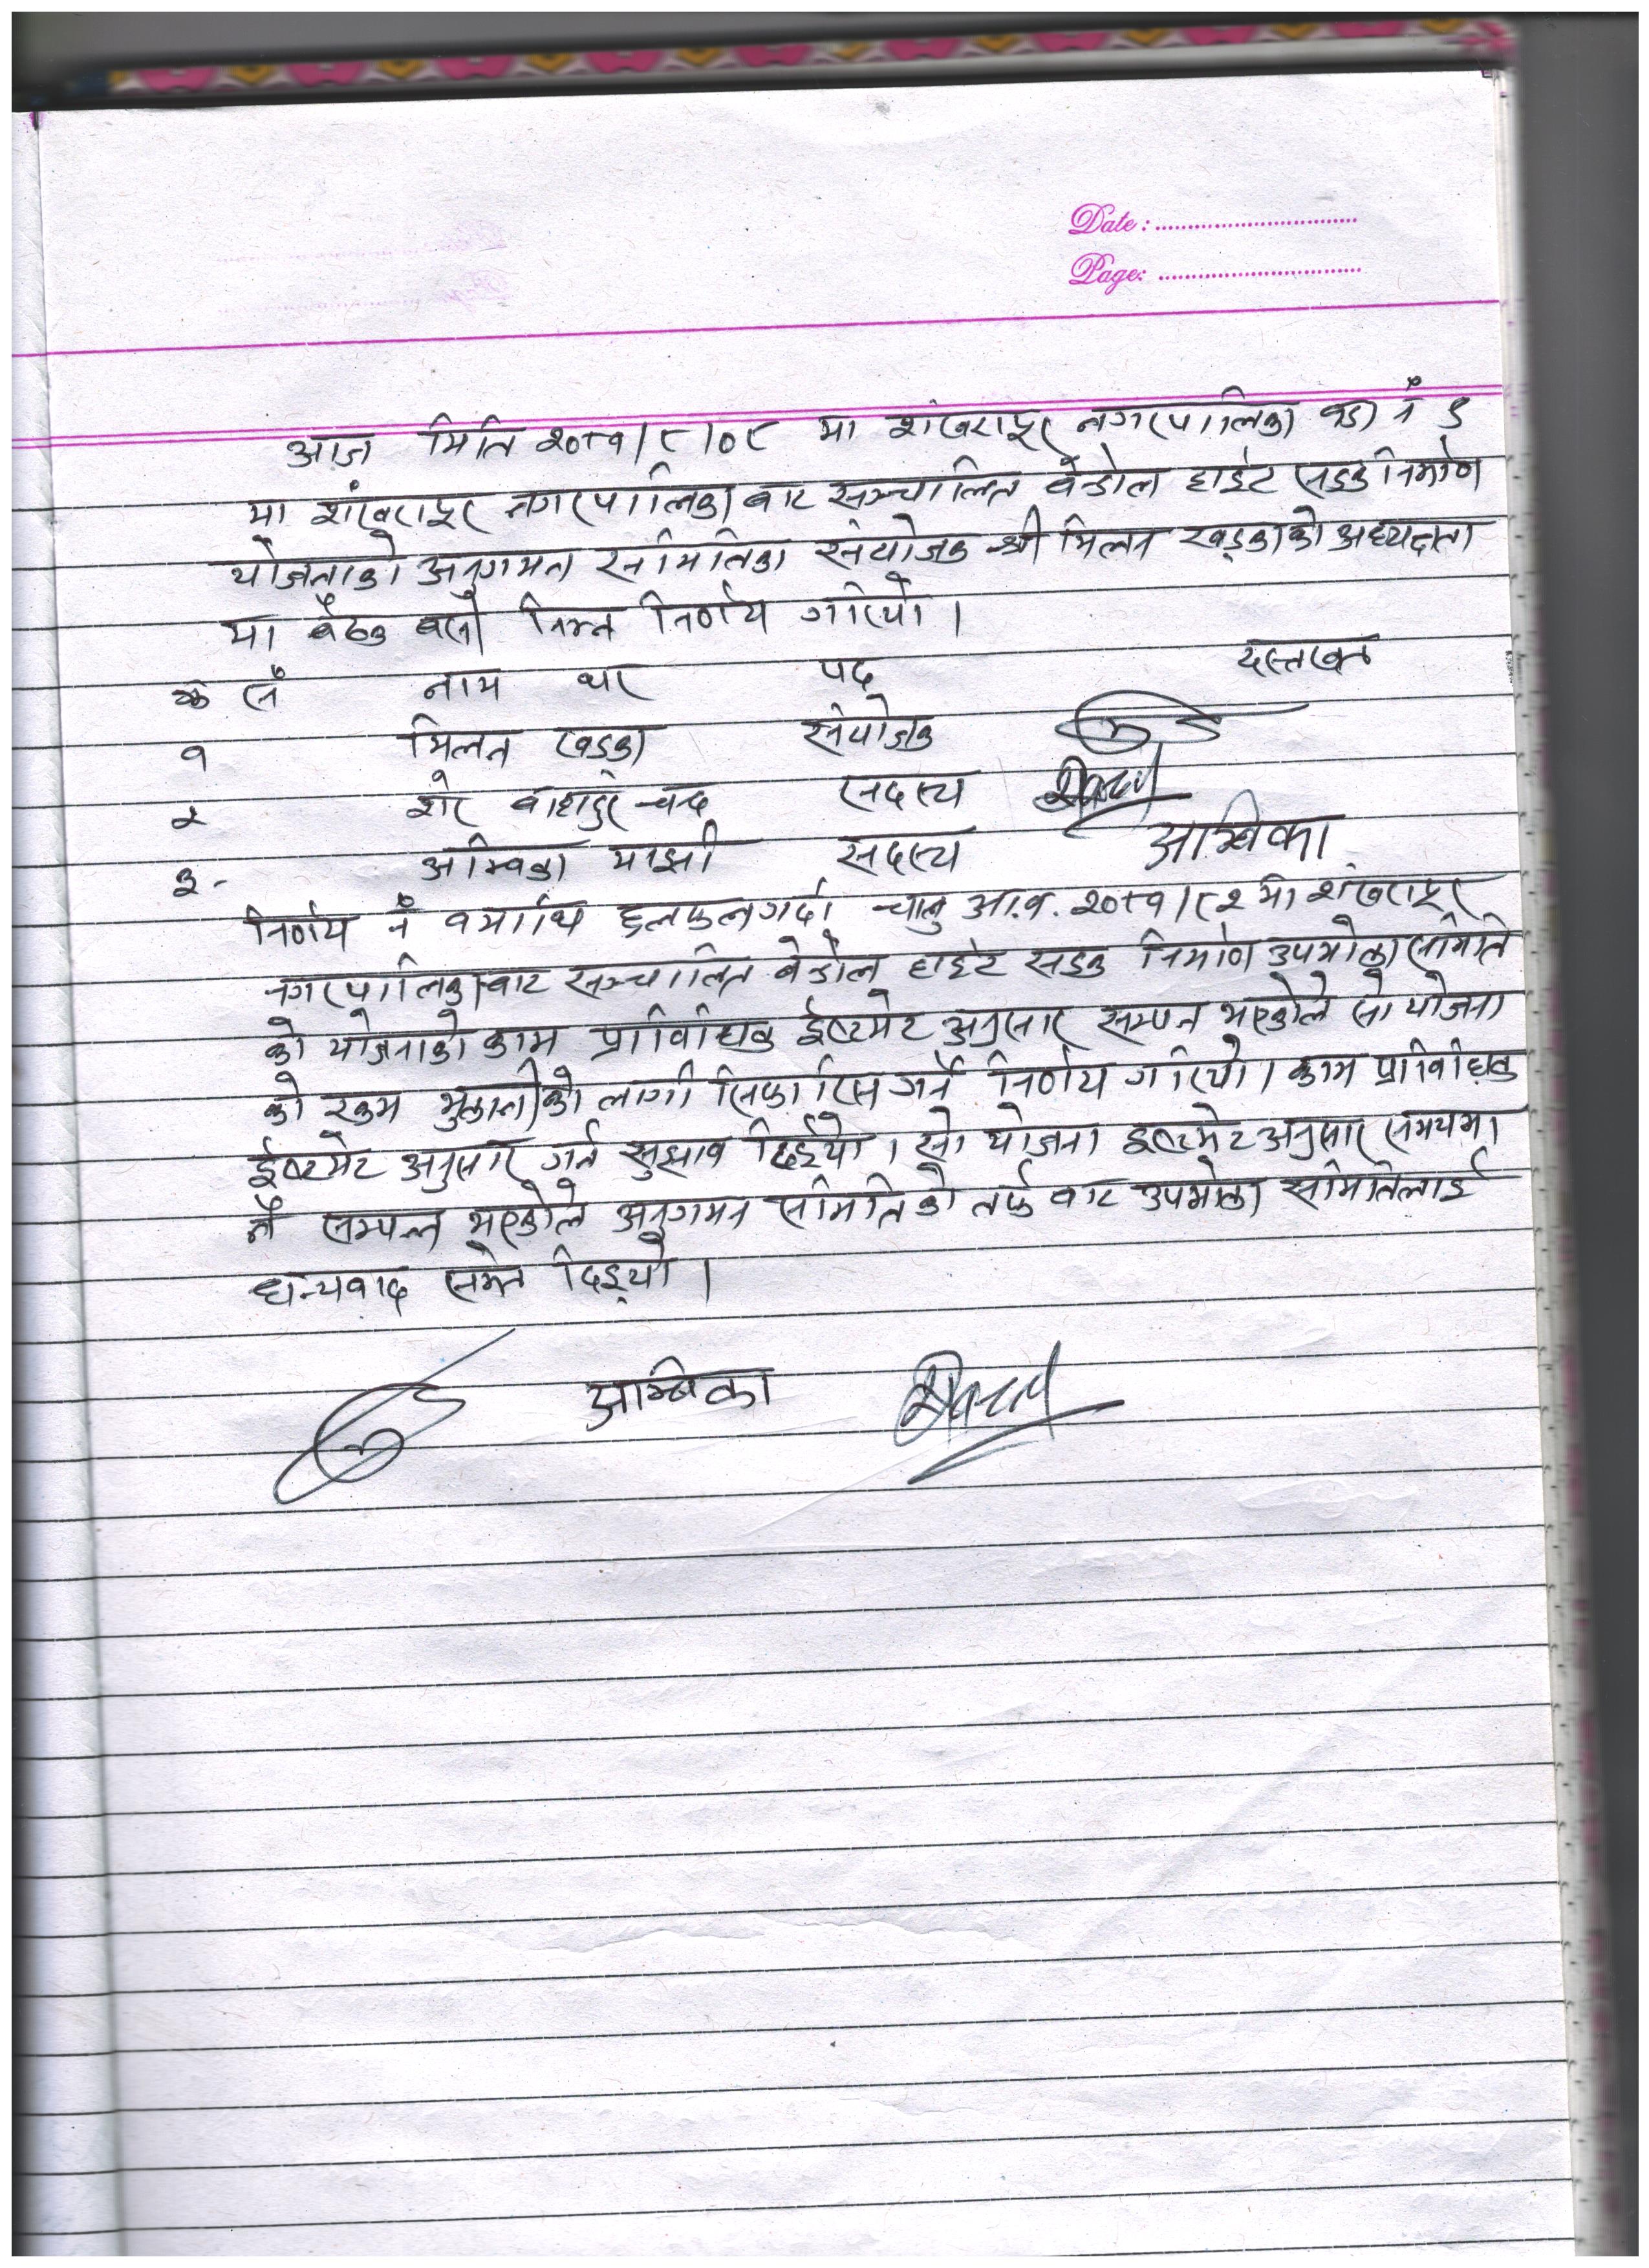 Date : ..............................
Page: ..............................
आज मिति २०८१/८/०८ मा शंखरापुर नगरपालिका वडा नं ९
मा शंखरापुर नगरपालिका बाट सञ्चालित बेन्डोल हाईट सडक निर्माण
योजनाको अनुगमन समितिका संयोजक श्री मिलन खड्काको अध्यक्षता
मा बैठक बसी निम्न निर्णय गरियो ।
क्र सं नाम थर पद दस्तखत
१ मिलन खडका संयोजक
२ शेर बाहादुर चन्द सदस्य
३- अम्विका माझी सदस्य अम्बिका
निर्णय नं १ माथि छलफल गर्दा चालु आ.व. २०८१/८२ मा शंखरापुर
नगरपालिका बाट सञ्चालित बेन्डोल हाईट सडक निर्माण उपभोक्ता समिति
को योजनाको काम प्राविधिक ईष्टमेट अनुसार सम्पन्न भएकोले सो योजना
को रकम भुक्तानीको लागी सिफारिस गर्ने निर्णय गरियो । काम प्राविधिक
ईष्टमेट अनुसार गर्न सुझाव दिईयो । सो योजना इष्टमेट अनुसार समयमा
नै सम्पन्न भएकोले अनुगमन समितिको तर्फ बाट उपभोक्ता समितिलाई
धन्यवाद समेत दिइयो ।
अम्बिका